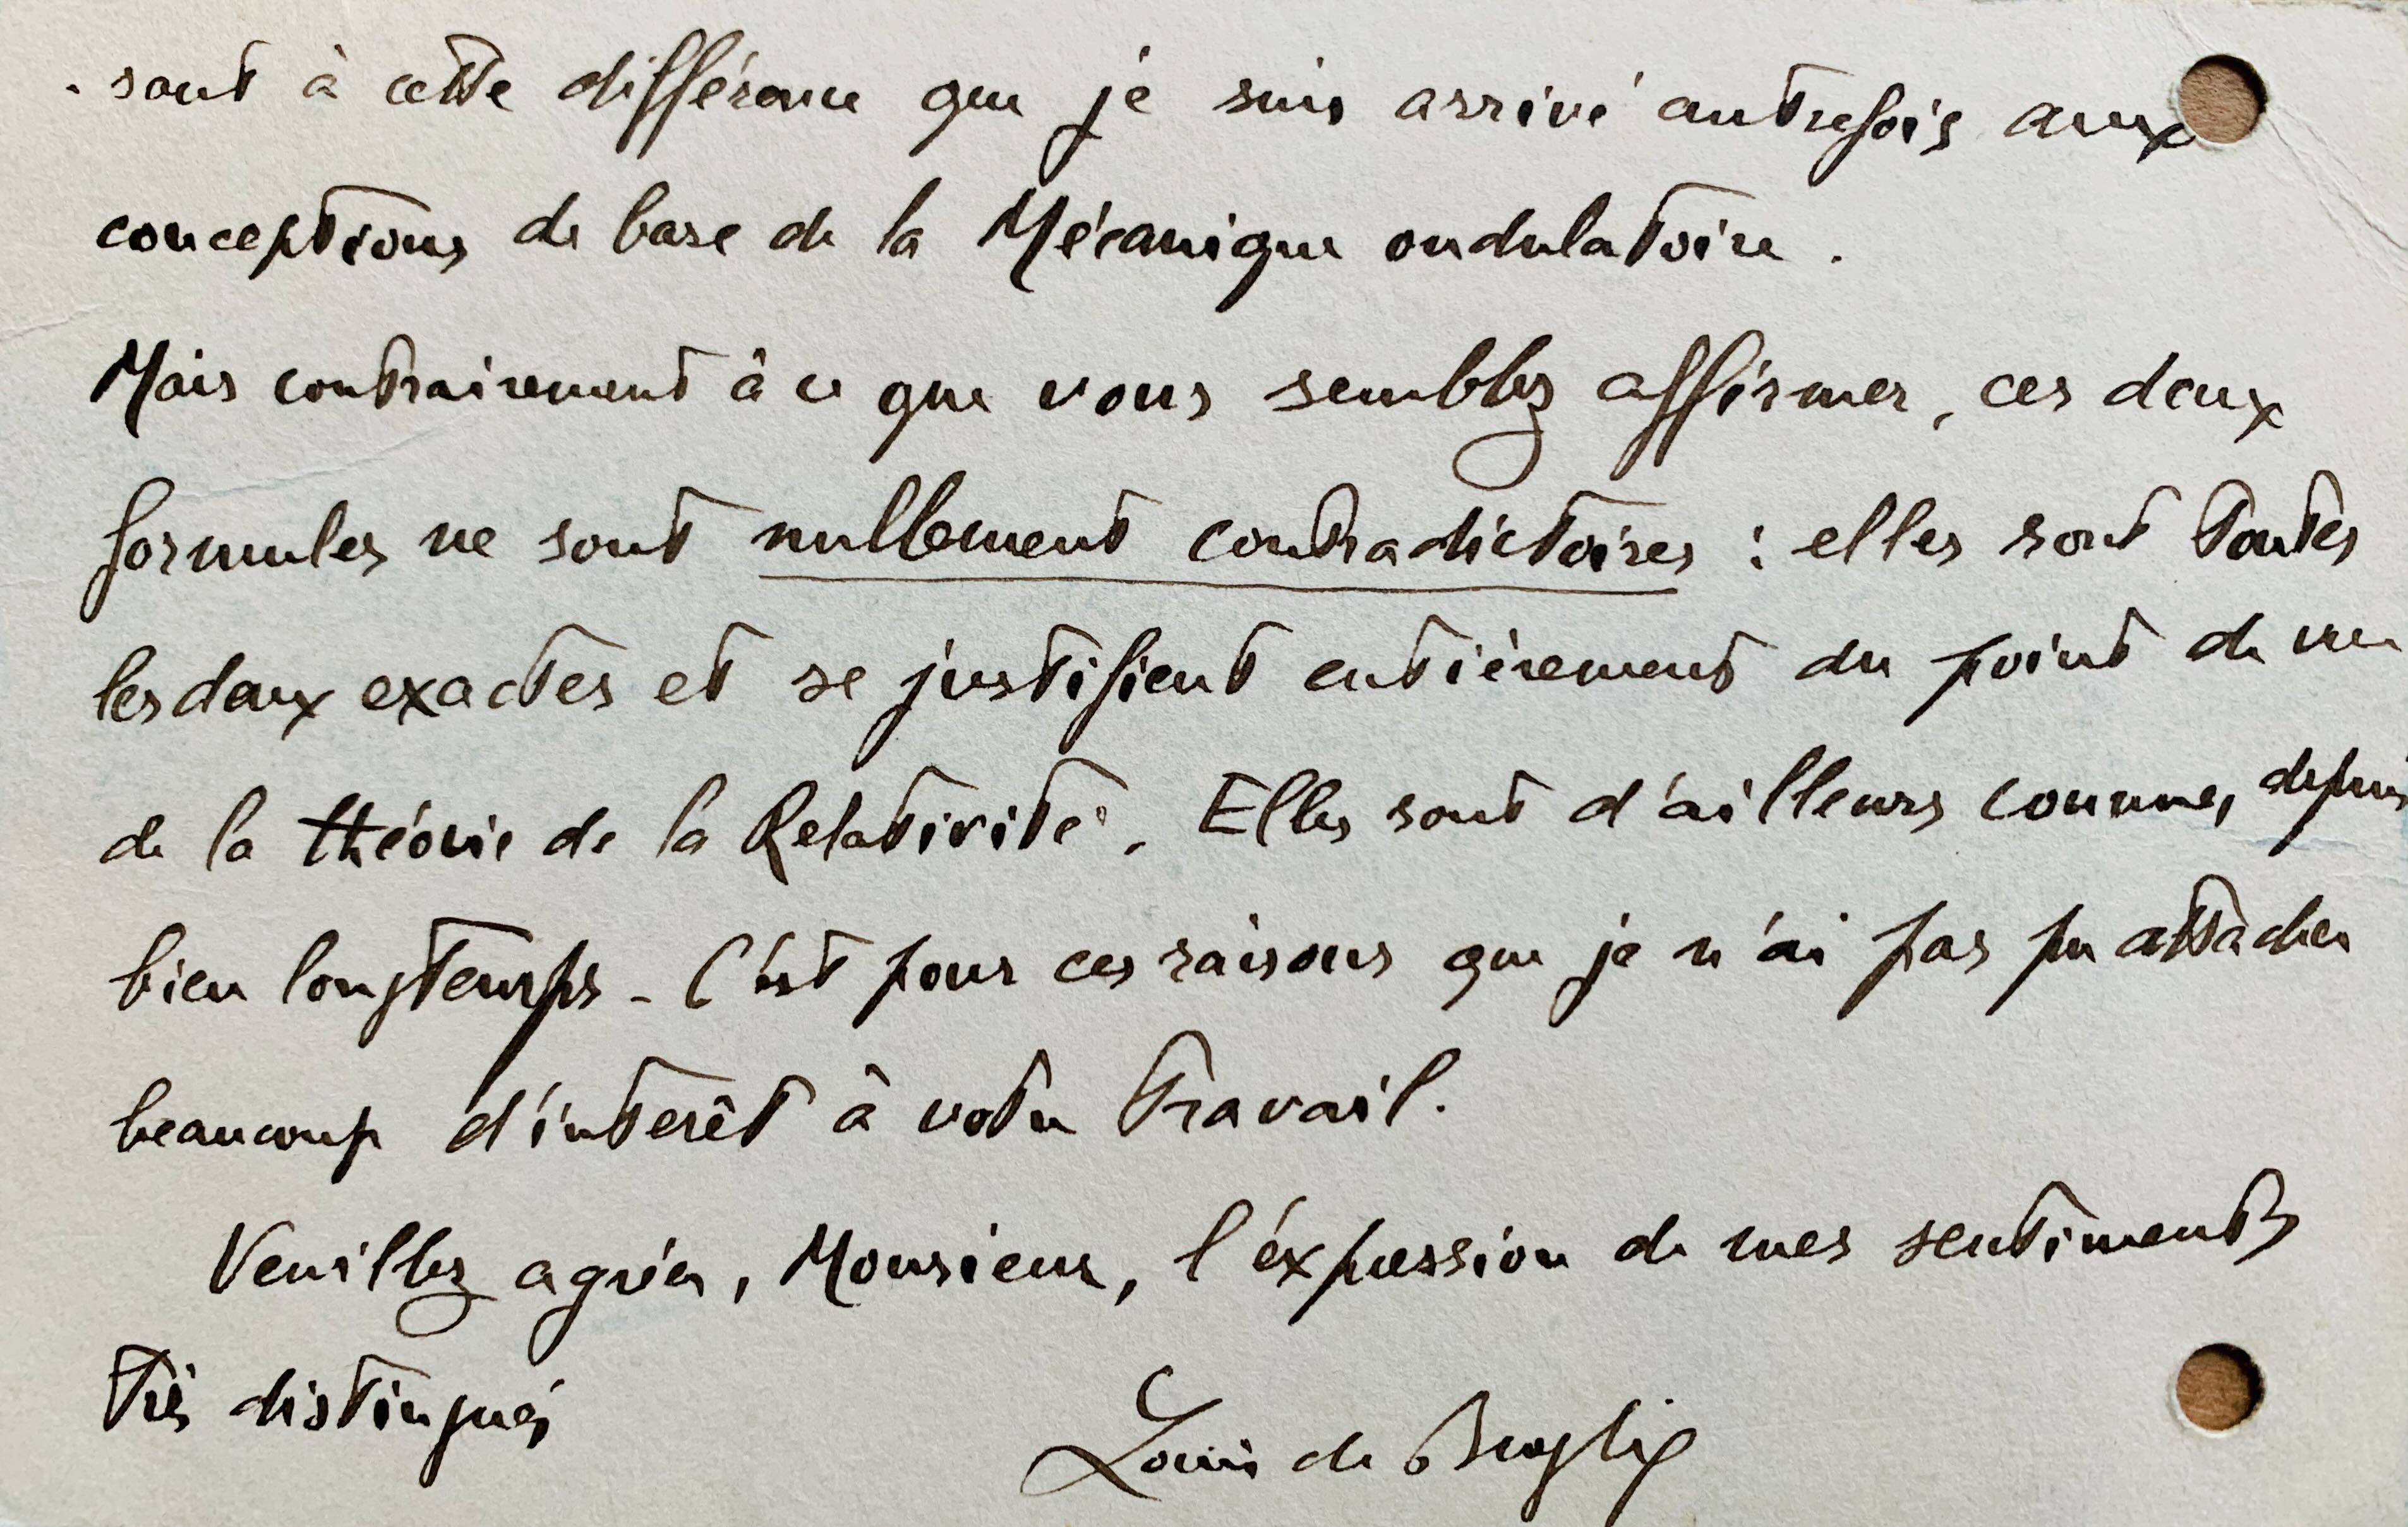 sant à cette différence que je suis arrivé autrefois aux
conceptions de base de la Mécanique ondulatoire.
Mais contrairement à ce que vous semblez affirmer, ces deux
formules ne sont nullement contradictoires : elles sont toutes
les deux exactes et se justifient entièrement du point de vue
de la théorie de la Relativité. Elles sont d'ailleurs connues depuis
bien longtemps - C'est pour ces raisons que je n'ai pas pu attacher
beaucoup d'interêt à votre travail.
Veuillez agréer, Monsieur, l'éxpression de mes sentiments
très distingués
Louis de Broglie